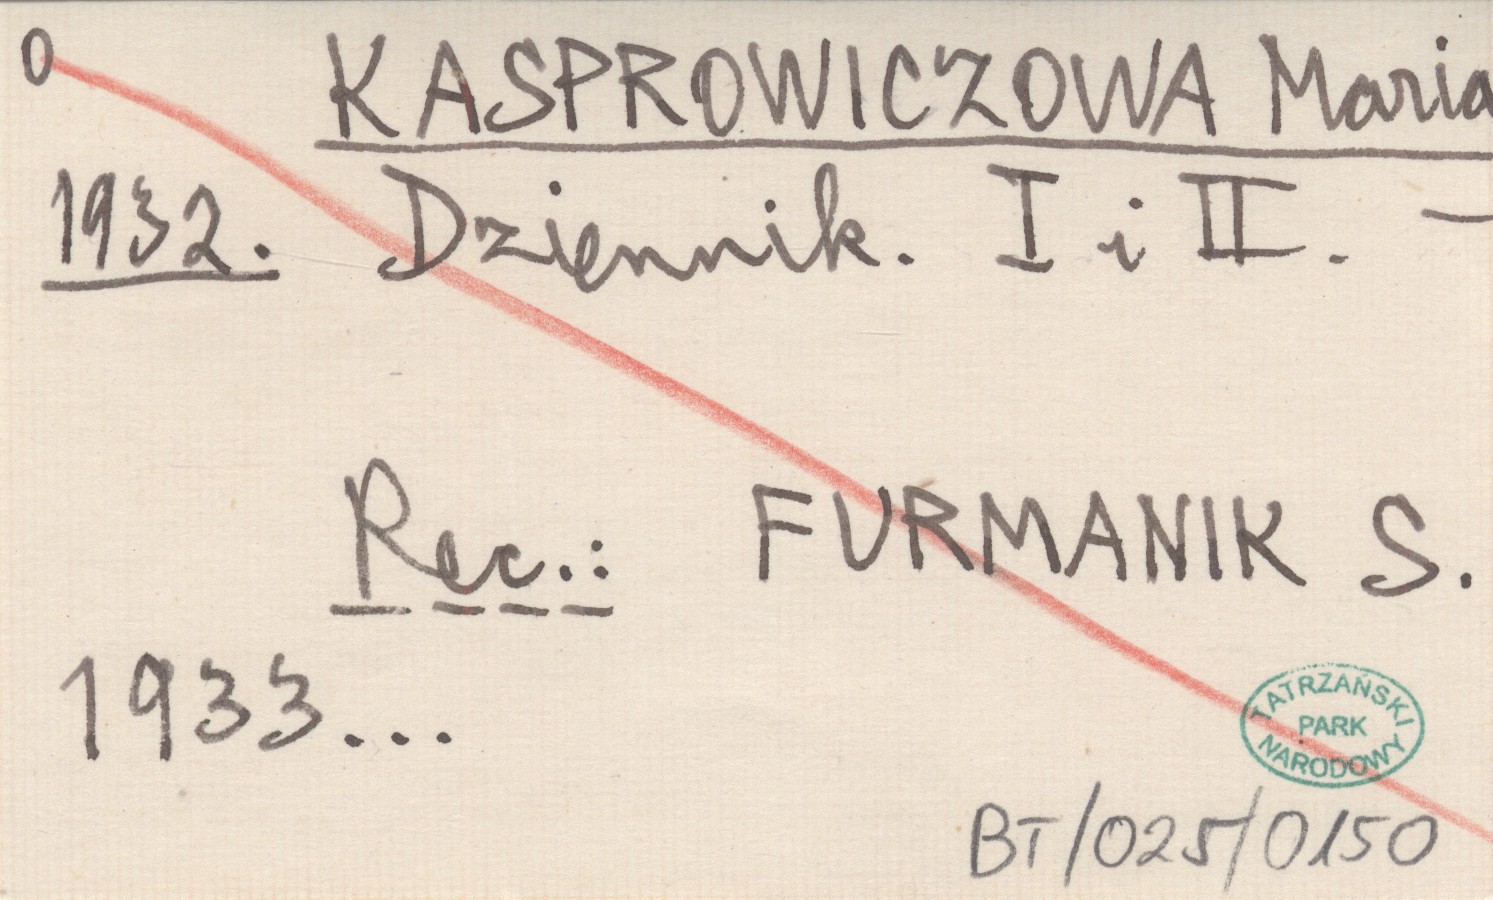 0 KASPROWICZOWA Maria
1932. Dziennik. I i II. —
Rec.: FURMANIK S.
1933...
TATRZAŃSKI
PARK
NARODOWY
BT/025/0150